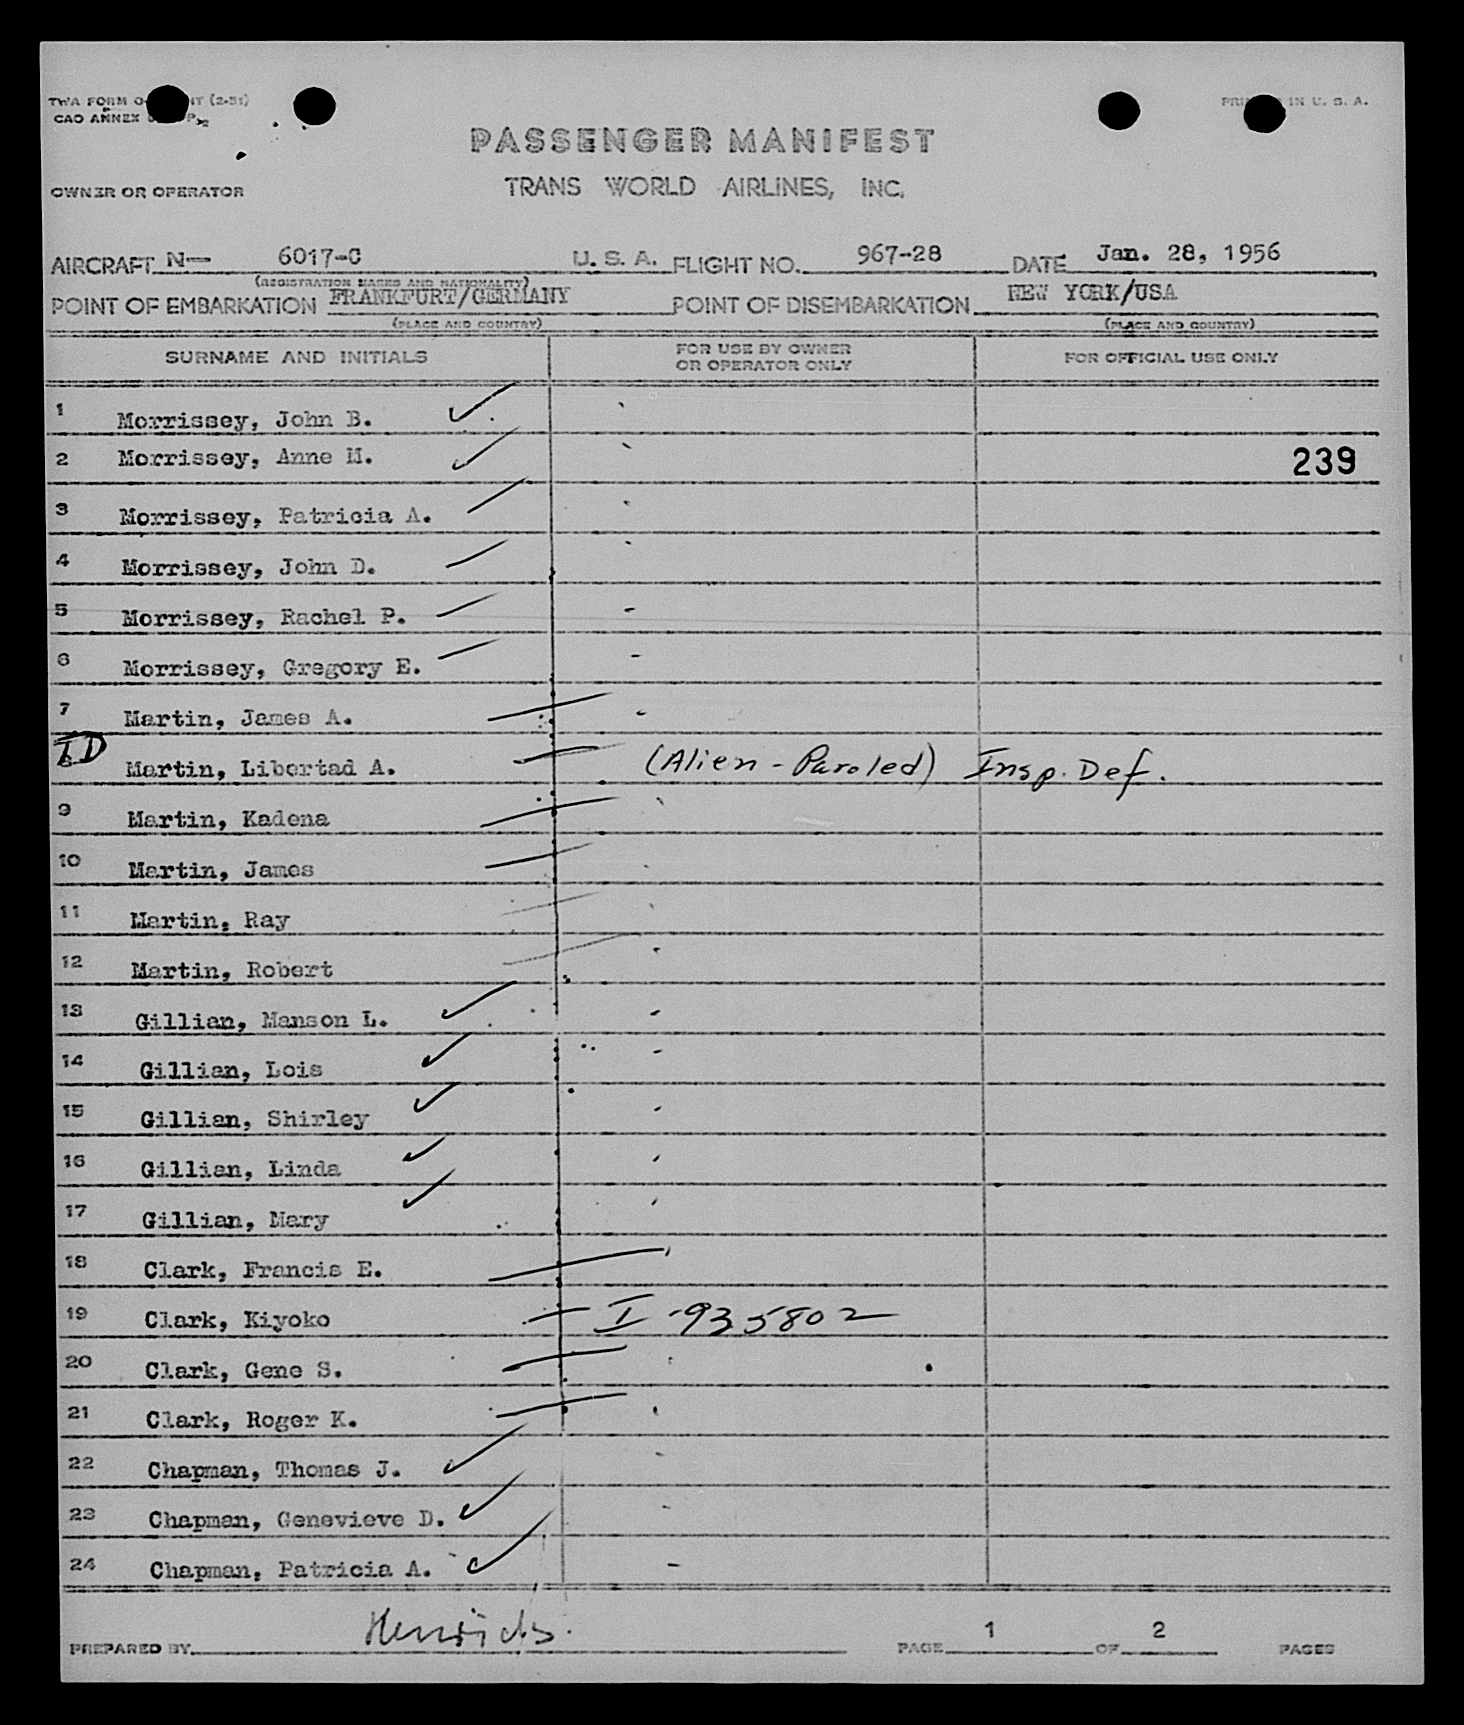 TWA FORM O- NT (2-51)
CAO ANNEX
PRINTED IN U. S. A.
PASSENGER MANIFEST
OWNER OR OPERATOR TRANS WORLD AIRLINES, INC.
AIRCRAFT N— 6017-C U. S. A. FLIGHT NO. 967-28 DATE Jan. 28, 1956
(REGISTRATION MARKS AND NATIONALITY)
POINT OF EMBARKATION FRANKFURT/GERMANY POINT OF DISEMBARKATION NEW YORK/USA
(PLACE AND COUNTRY) (PLACE AND COUNTRY)
SURNAME AND INITIALS FOR USE BY OWNER OR OPERATOR ONLY FOR OFFICIAL USE ONLY
1 Morrissey, John B.
2 Morrissey, Anne M. 239
3 Morrissey, Patricia A.
4 Morrissey, John D.
5 Morrissey, Rachel P.
6 Morrissey, Gregory E.
7 Martin, James A.
8 ID Martin, Libertad A. (Alien - Paroled) Insp. Def.
9 Martin, Kadena
10 Martin, James
11 Martin, Ray
12 Martin, Robert
13 Gillian, Manson L.
14 Gillian, Lois
15 Gillian, Shirley
16 Gillian, Linda
17 Gillian, Mary
18 Clark, Francis E.
19 Clark, Kiyoko I-935802
20 Clark, Gene S.
21 Clark, Roger K.
22 Chapman, Thomas J.
23 Chapman, Genevieve D.
24 Chapman, Patricia A.
PREPARED BY Henrichs. PAGE 1 OF 2 PAGES